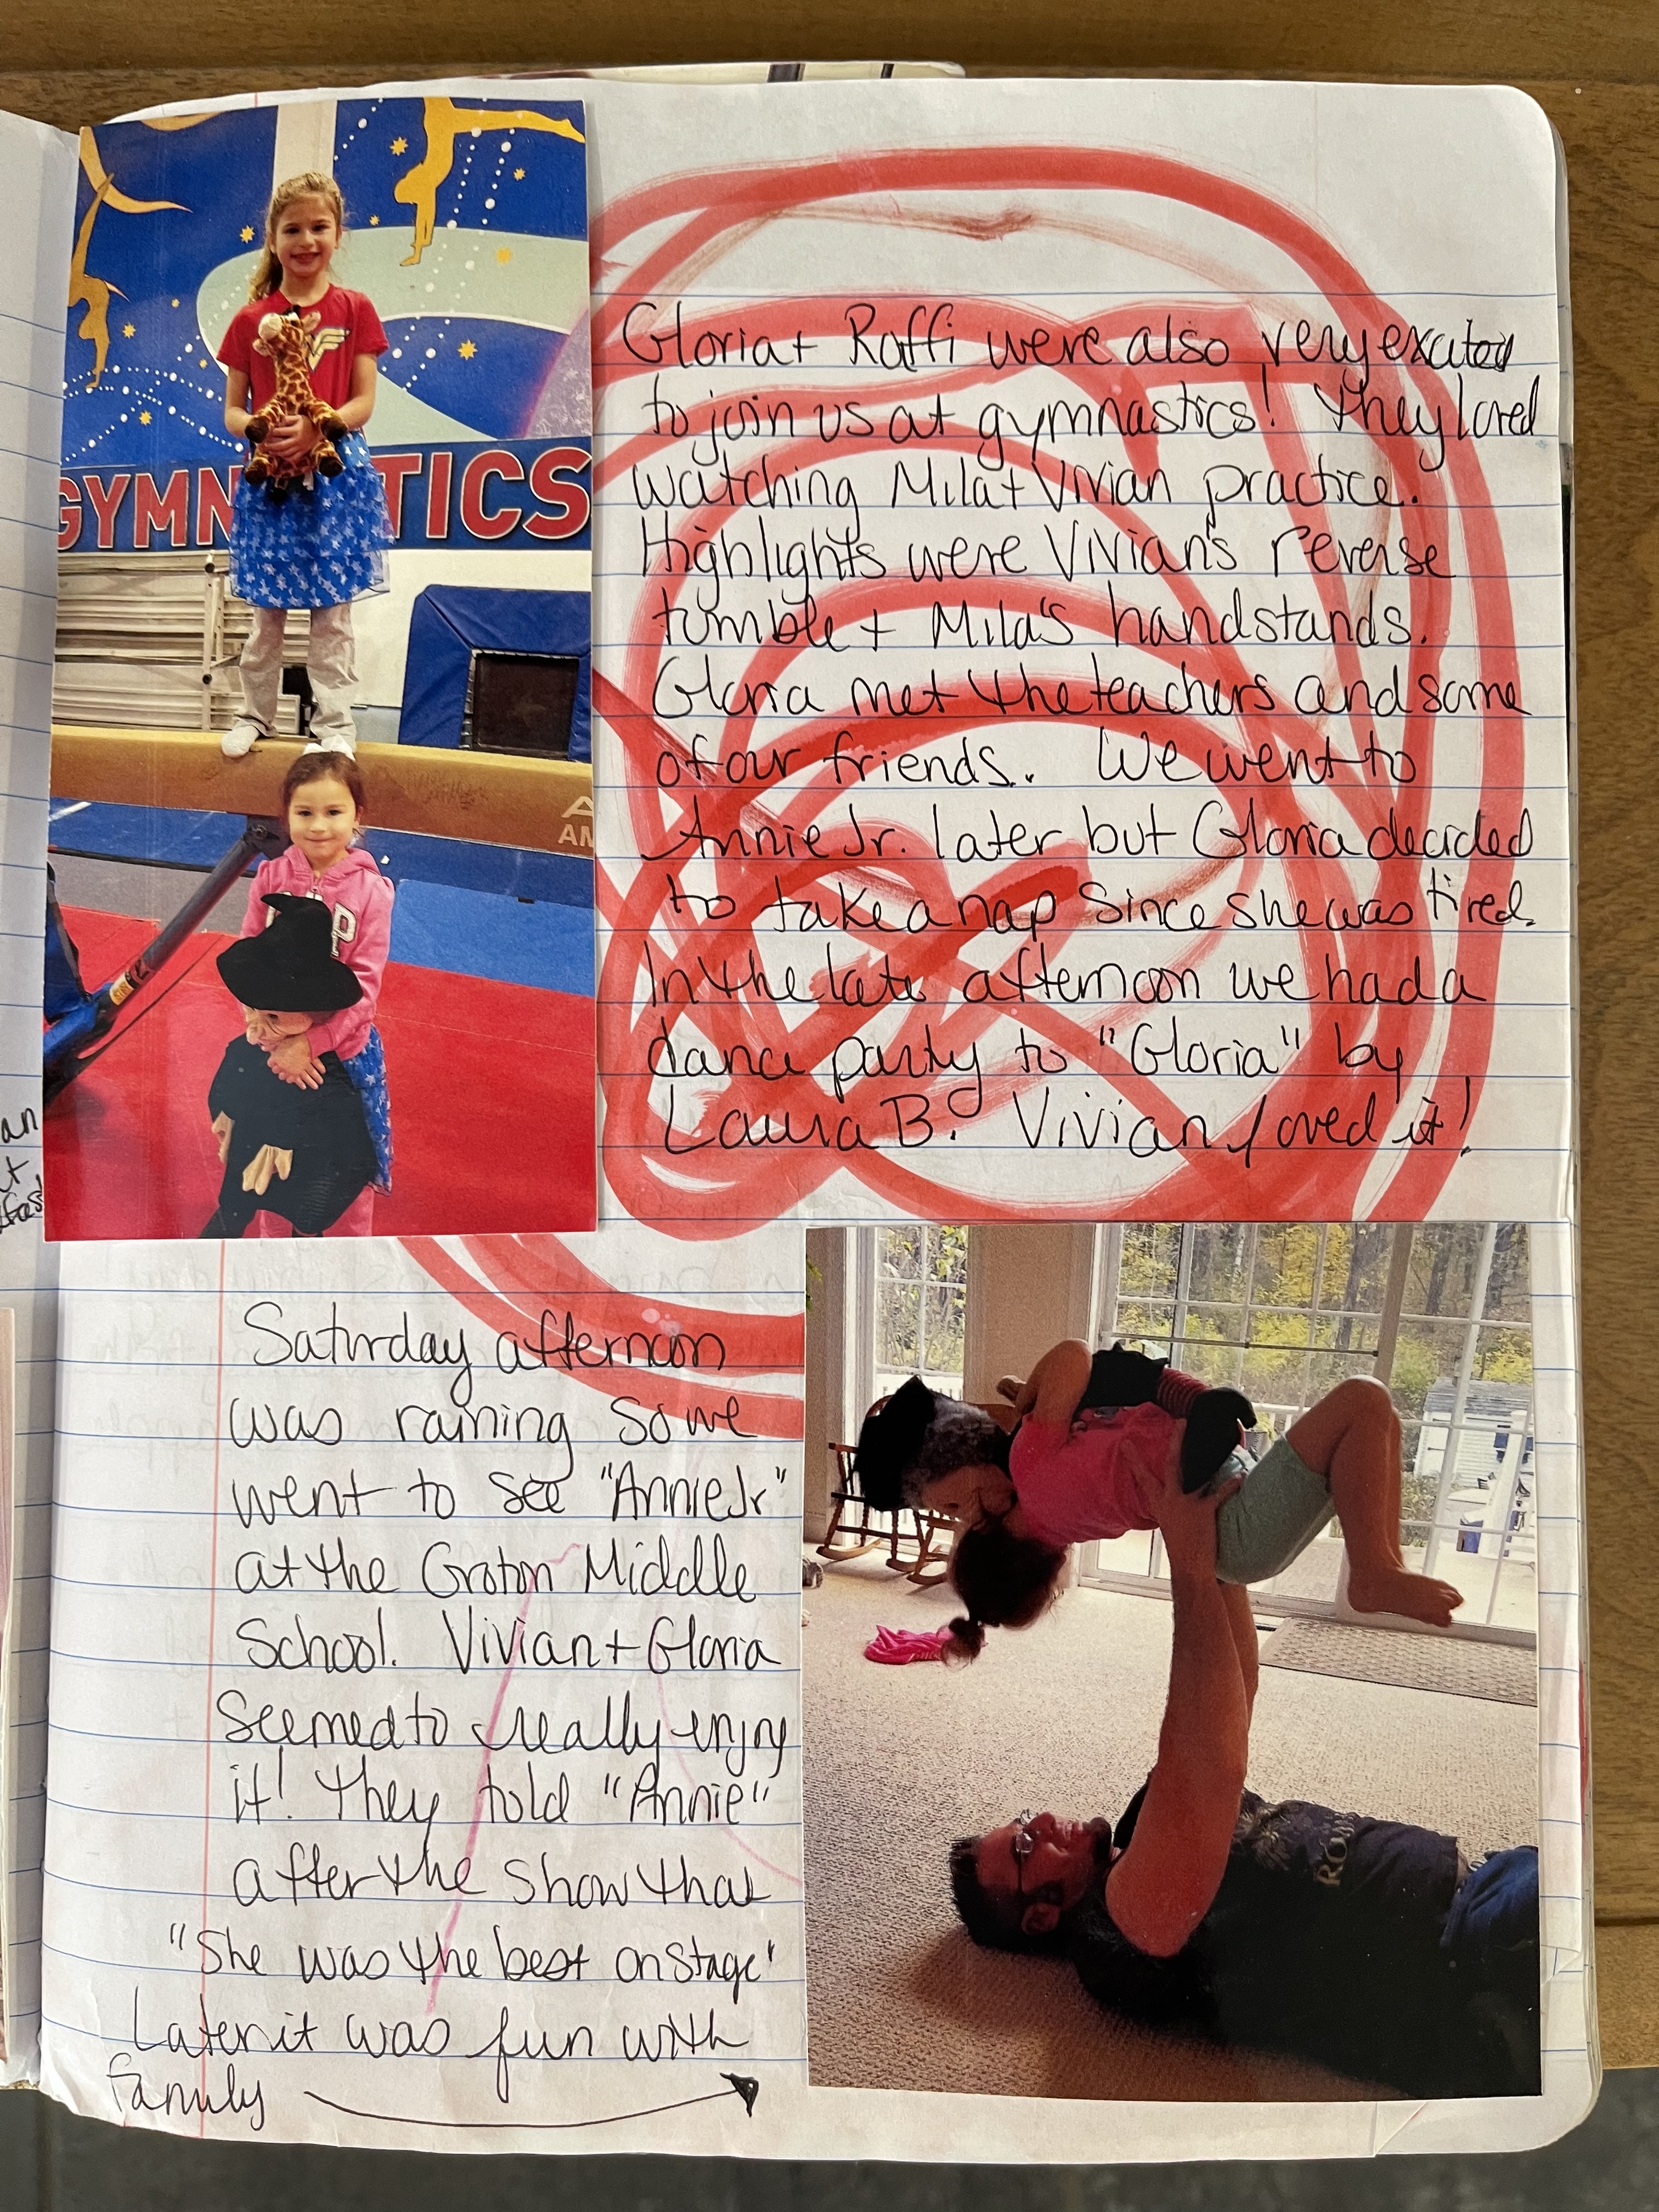 GYMN TICS
A
AM
P
Gloria + Raffi were also very excited
to join us at gymnastics! They loved
watching Mila + Vivian practice.
Highlights were Vivian's reverse
tumble + Mila's handstands.
Gloria met the teachers and some
of our friends. We went to
Annie Jr. later but Gloria decided
to take a nap since she was tired.
In the late afternoon we had a
dance party to "Gloria" by
Laura B. Vivian loved it!
an
Saturday afternoon
was raining so we
went to see "Annie Jr"
at the Groton Middle
School. Vivian + Gloria
seemed to really enjoy
it! They told "Annie"
after the show that
"She was the best on stage"
Later it was fun with
family